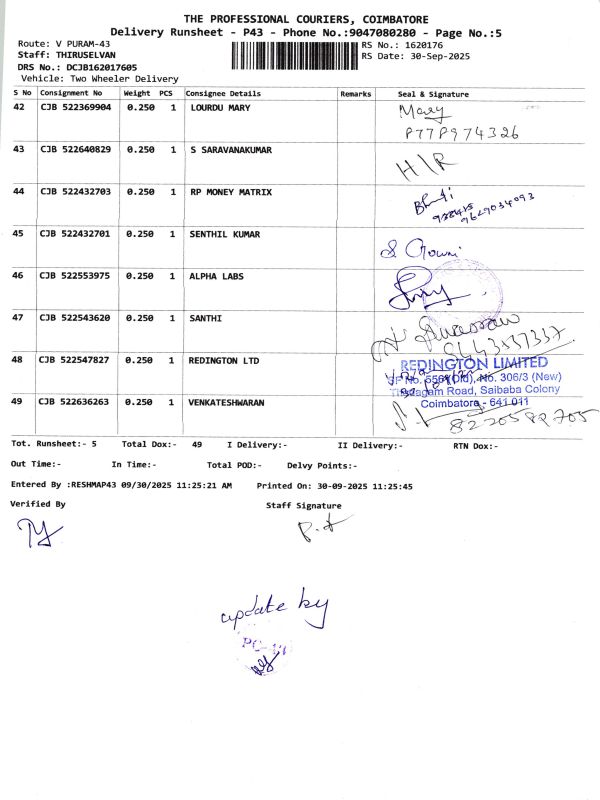 THE PROFESSIONAL COURIERS, COIMBATORE
Delivery Runsheet - P43 - Phone No.:9047080280 - Page No.:5
Route: V PURAM-43 RS No.: 1620176
Staff: THIRUSELVAN RS Date: 30-Sep-2025
DRS No.: DCJB162017605
Vehicle: Two Wheeler Delivery
S No Consignment No Weight PCS Consignee Details Remarks Seal & Signature
42 CJB 522369904 0.250 1 LOURDU MARY Mary
43 CJB 522640829 0.250 1 S SARAVANAKUMAR H\R
44 CJB 522432703 0.250 1 RP MONEY MATRIX
9629034093
45 CJB 522432701 0.250 1 SENTHIL KUMAR
46 CJB 522553975 0.250 1 ALPHA LABS
47 CJB 522543620 0.250 1 SANTHI
48 CJB 522547827 0.250 1 REDINGTON LTD REDINGTON LIMITED
No. 306/3 (New)
Road, Saibaba Colony
49 CJB 522636263 0.250 1 VENKATESHWARAN Coimbatore - 641 011
Tot. Runsheet:- 5 Total Dox:- 49 I Delivery:- II Delivery:- RTN Dox:-
Out Time:- In Time:- Total POD:- Delvy Points:-
Entered By :RESHMAP43 09/30/2025 11:25:21 AM Printed On: 30-09-2025 11:25:45
Verified By Staff Signature
update by